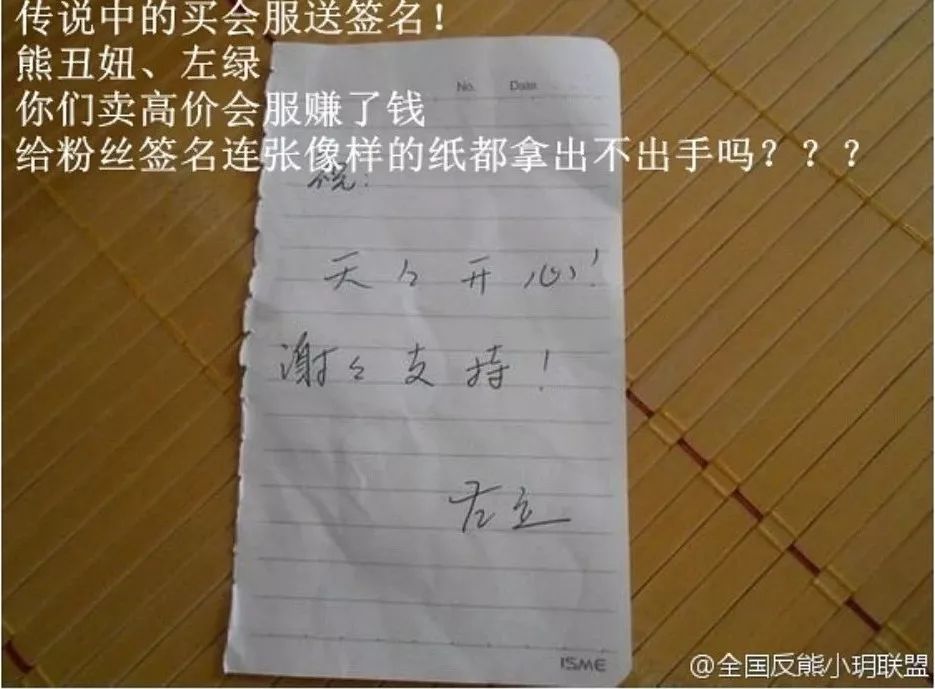 传说中的买会服送签名！
熊丑妞、左绿
你们卖高价会服赚了钱
给粉丝签名连张像样的纸都拿出不出手吗？？？
No. Date
祝：
天々开心！
谢々支持！
左立
ISME
@全国反熊小玥联盟